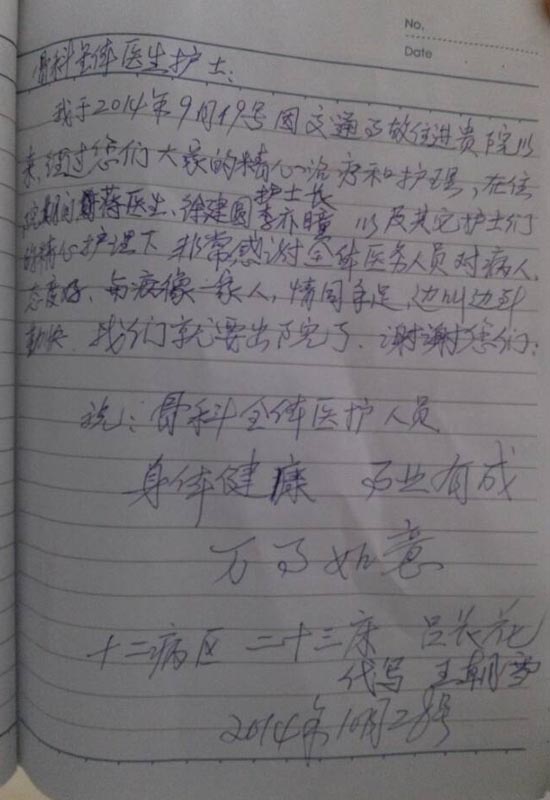 No.
Date
骨科全体医生护士:
我于2014年9月19号因交通事故住进贵院以
来,通过您们大家的精心治疗和护理,在住
护士长
院期间蒋医生、徐建国李亦瞳以及其它护士们
的精心护理下 非常感谢全体医务人员对病人
态度好、与病像一家人,情同手足,边叫边到
勤快.我们就要出院了.谢谢您们:
祝:骨科全体医护人员
身体健康 事业有成
万事如意
十二病区 二十三床 吕长花
代写 王朝雪
2014年10月28号